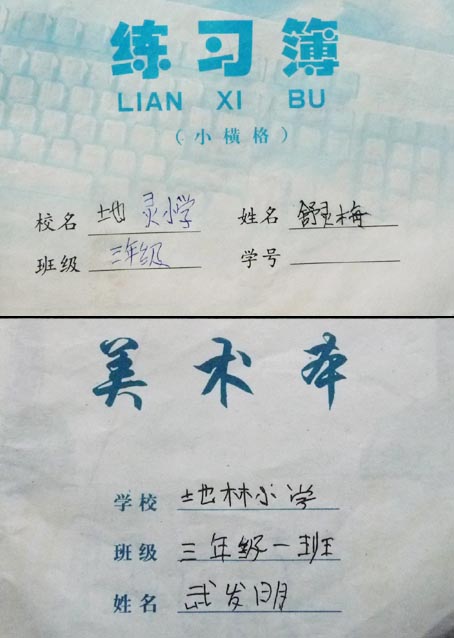 练习簿
LIAN XI BU
(小横格)
校名 地灵小学 姓名 舒灵梅
班级 三年级 学号
美术本
学校 地林小学
班级 三年级一班
姓名 武发明